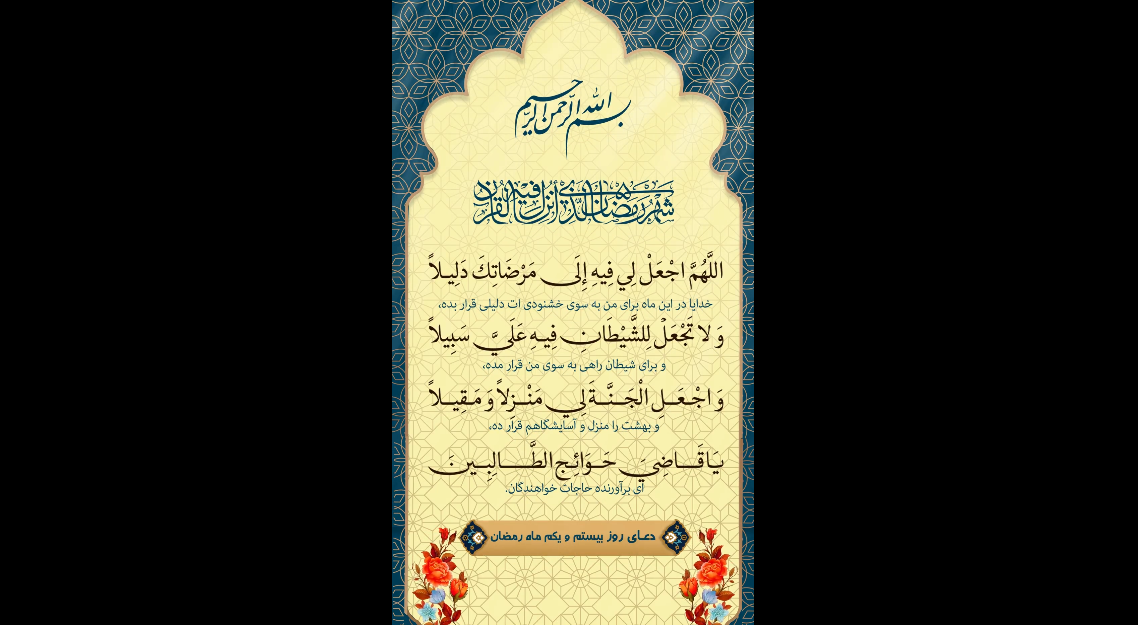 بسم الله الرحمن الرحیم
شهر رمضان الذي أنزل فيه القرآن
اللَّهُمَّ اجْعَلْ لِي فِيهِ إِلَى مَرْضَاتِكَ دَلِيلاً
خدایا در این ماه برای من به سوی خشنودی ات دلیلی قرار بده،
وَ لا تَجْعَلْ لِلشَّيْطَانِ فِيهِ عَلَيَّ سَبِيلاً
و برای شیطان راهی به سوی من قرار مده،
وَ اجْعَلِ الْجَنَّةَ لِي مَنْزِلاً وَ مَقِيلاً
و بهشت را منزل و آسایشگاهم قرار ده،
يَا قَاضِيَ حَوَائِجِ الطَّالِبِينَ
ای برآورنده حاجات خواهندگان.
دعای روز بیستم و یکم ماه رمضان